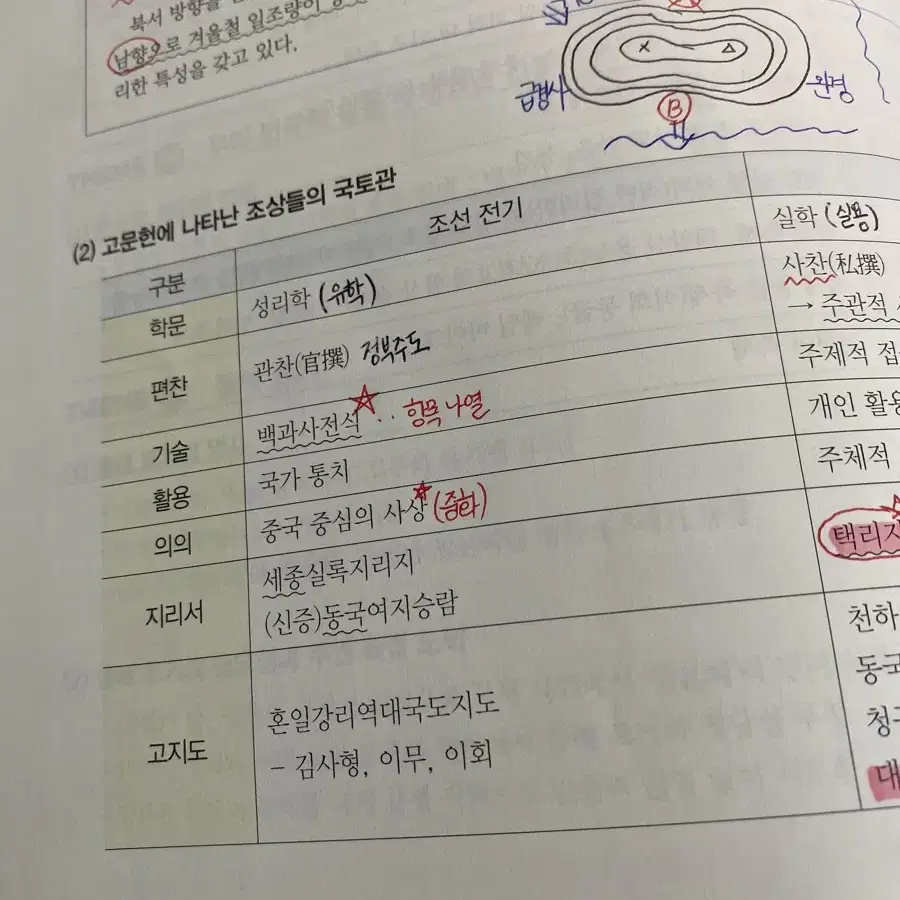 북서 방향을
남향으로 겨울철 일조량이
리한 특성을 갖고 있다.
급경사
B
완경
(2) 고문헌에 나타난 조상들의 국토관
구분 조선 전기
학문 성리학 (유학) 실학 (실용)
편찬 관찬(官撰) 정부주도 사찬(私撰)
→ 주관적
기술 백과사전식 ‥ 항목 나열 주제적
활용 국가 통치 개인 활용
의의 중국 중심의 사상 (중화) 주체적
지리서 세종실록지리지 택리지
(신증)동국여지승람
고지도 혼일강리역대국도지도
- 김사형, 이무, 이회
천하
동국
청구
대